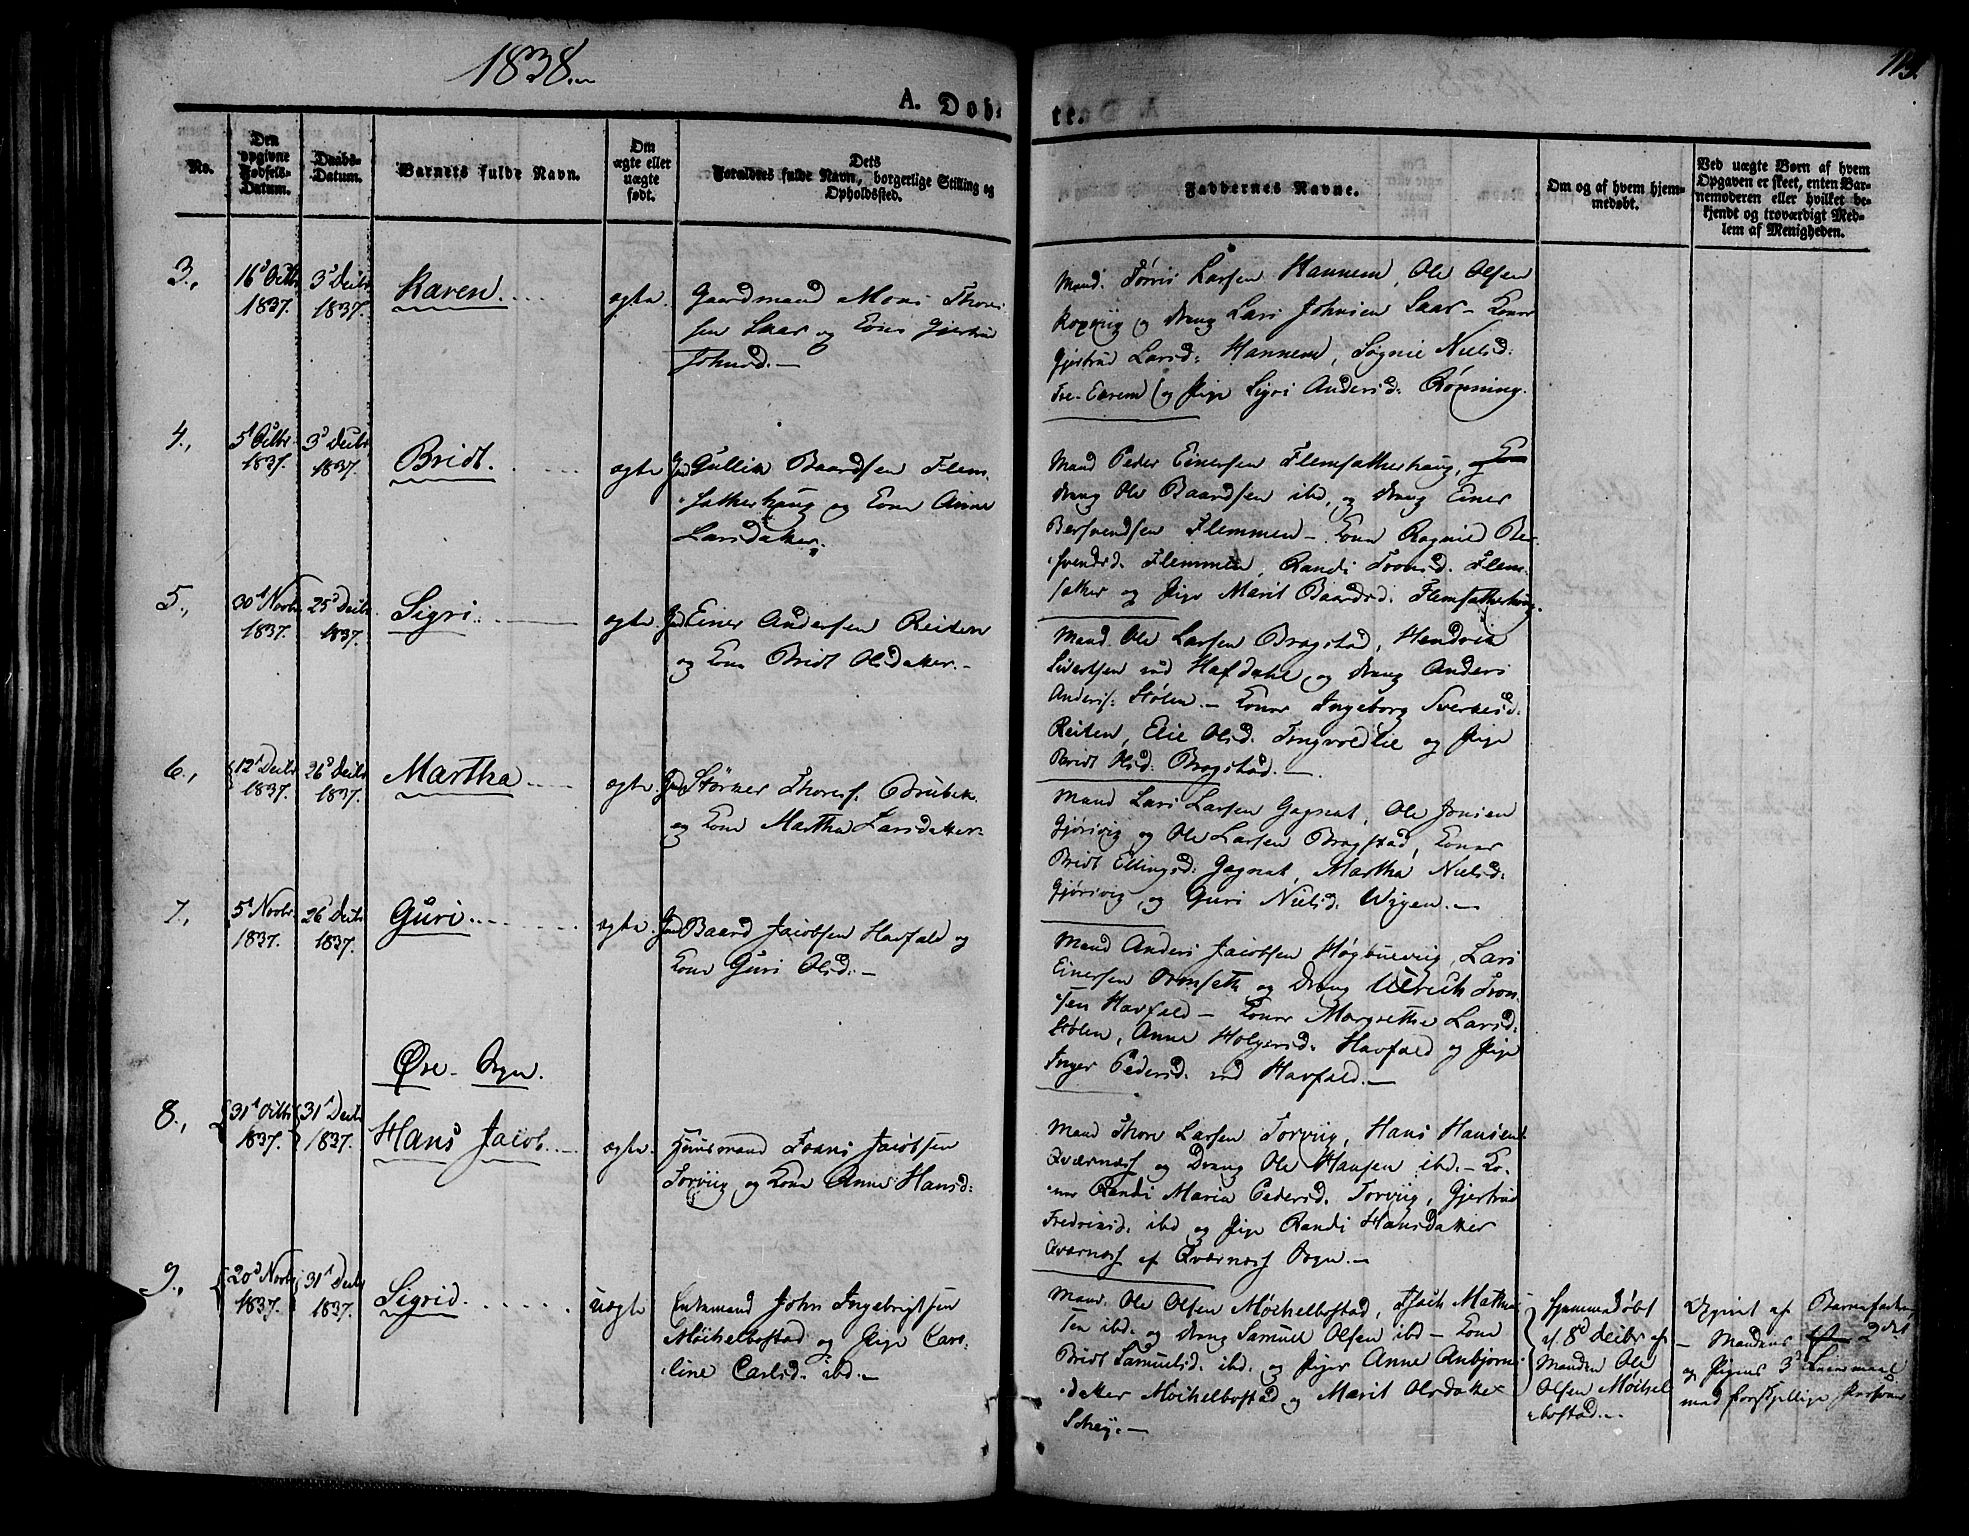 1838.
113.
A. Døb-
te.
No.
Den opgivne Fødsels-Datum.
Daabs-Datum.
Barnets fulde Navn.
Om ægte eller uægte født.
Dets Forældres fulde Navn, borgerlige Stilling og Opholdssted.
Faddernes Navne.
Om og af hvem hjem-
medøbt.
Ved uægte Børn af hvem
Opgaven er skeet, enten Bar-
nemoderen eller hvilket be-
kjendt og troværdigt Med-
lem af Menigheden.
3.,
1837.
1837.
Karen.
ægte
Gaardmand Mons Thore
sen Saar og Kone Gjertru
Johnsd.
Mand. Larsen Hannem, Ole Olsen
og Dreng Lars Johnsen Saar - Koner
Gjertrud Larsd: Hannem, Nielsd:
og Pige Sigri Andersd: Rönning.
4.,
5t Octbr 1837.
3d Decbr 1837.
Bridt.
ægte
Gd Gullik Baardsen Flem-
sætherhaug og Kone Anne
Larsdatter.
Mand Peder Einersen Flemsætherhaug,
dreng Ole Baardsen ibd, og dreng Einer
Bersvendsen Flemmen - Koner Ragnild Ber-
svendsd. Flemmen, Randi Tronsd. Flem-
sæther og Pige Marit Baardsd. Flemsætherhaug.
5.,
30t Novbr 1837.
25d Decbr 1837.
Sigri.
ægte
Gd Einer Andersen Reiten
og Kone Bridt Olsdatter.
Mand. Ole Larsen Bragstad, Hendrik
Sivertsen Hafdahl, og dreng Anders
Anders: Stölen. - Koner Ingeborg Sverkesd:
Reiten, Olsd. Tingvoldlie og Pige
Bridt Olsd: Bragstad.
6.,
12t Decbr 1837.
26d Decbr 1837.
Martha
ægte
Gd Störker Thores:
og Kone Martha Larsdatter
Mand Lars Larsen Gagnat, Ole Jonsen
Gjörsvig og Ole Larsen Bragstad, Koner
Bridt Ellingsd: Gagnat, Martha Nielsd.
Gjörsvig, og Guri Nielsd. Wigen.
7.,
5t Novbr 1837.
26d Decbr 1837.
Guri.
ægte
Gd Baard Jacobsen Havfald og
Kone Guri Olsd.
Mand Anders Jacobsen Lars
Einersen og Dreng Ulrich Tron-
sen Havfald - Koner Margrethe Larsd:
Stölen, Anne Holgersd: Havfald og Pige
Inger Pedersd. Havfald.
Øre - Sogn.
8.,
31t Octbr 1837.
31t Decbr 1837.
Hans Jacob.
ægte.
Huusmand Frans Jacobsen
Torvig og Kone Anne Hansd:
Mand Thore Larsen Torvig, Hans Hansen
Qværnæs og Dreng Ole Hansen ibd. - Ko-
ner Randi Maria Pedersd. Torvig, Gjertrud
ibd og Pige Randi Hansdatter
Qværnæs af Qværnæs Sogn.
9.,
20d Novbr 1837.
31t Decbr 1837.
Sigrid.
uægte
Enkemand John Ingebrigtsen
Möichelbostad og Pige Caro-
line Carlsd. ibd.
Mand. Ole Olsen Möichelbostad,
sen ibd. og dreng Samuel Olsen ibd - Kone
Bridt Samuelsd. ibd, og Piger Anne Anbjörns-
datter Möichelbostad og Marit Olsdatter
Hjemmedøbt
d. 8d Decbr af
Manden Ole
Olsen Möichel
bostad.
Opgivet af Barnefader
- Mandens 2det
og Pigens 3d Leiermaal
med forskjellige Personer